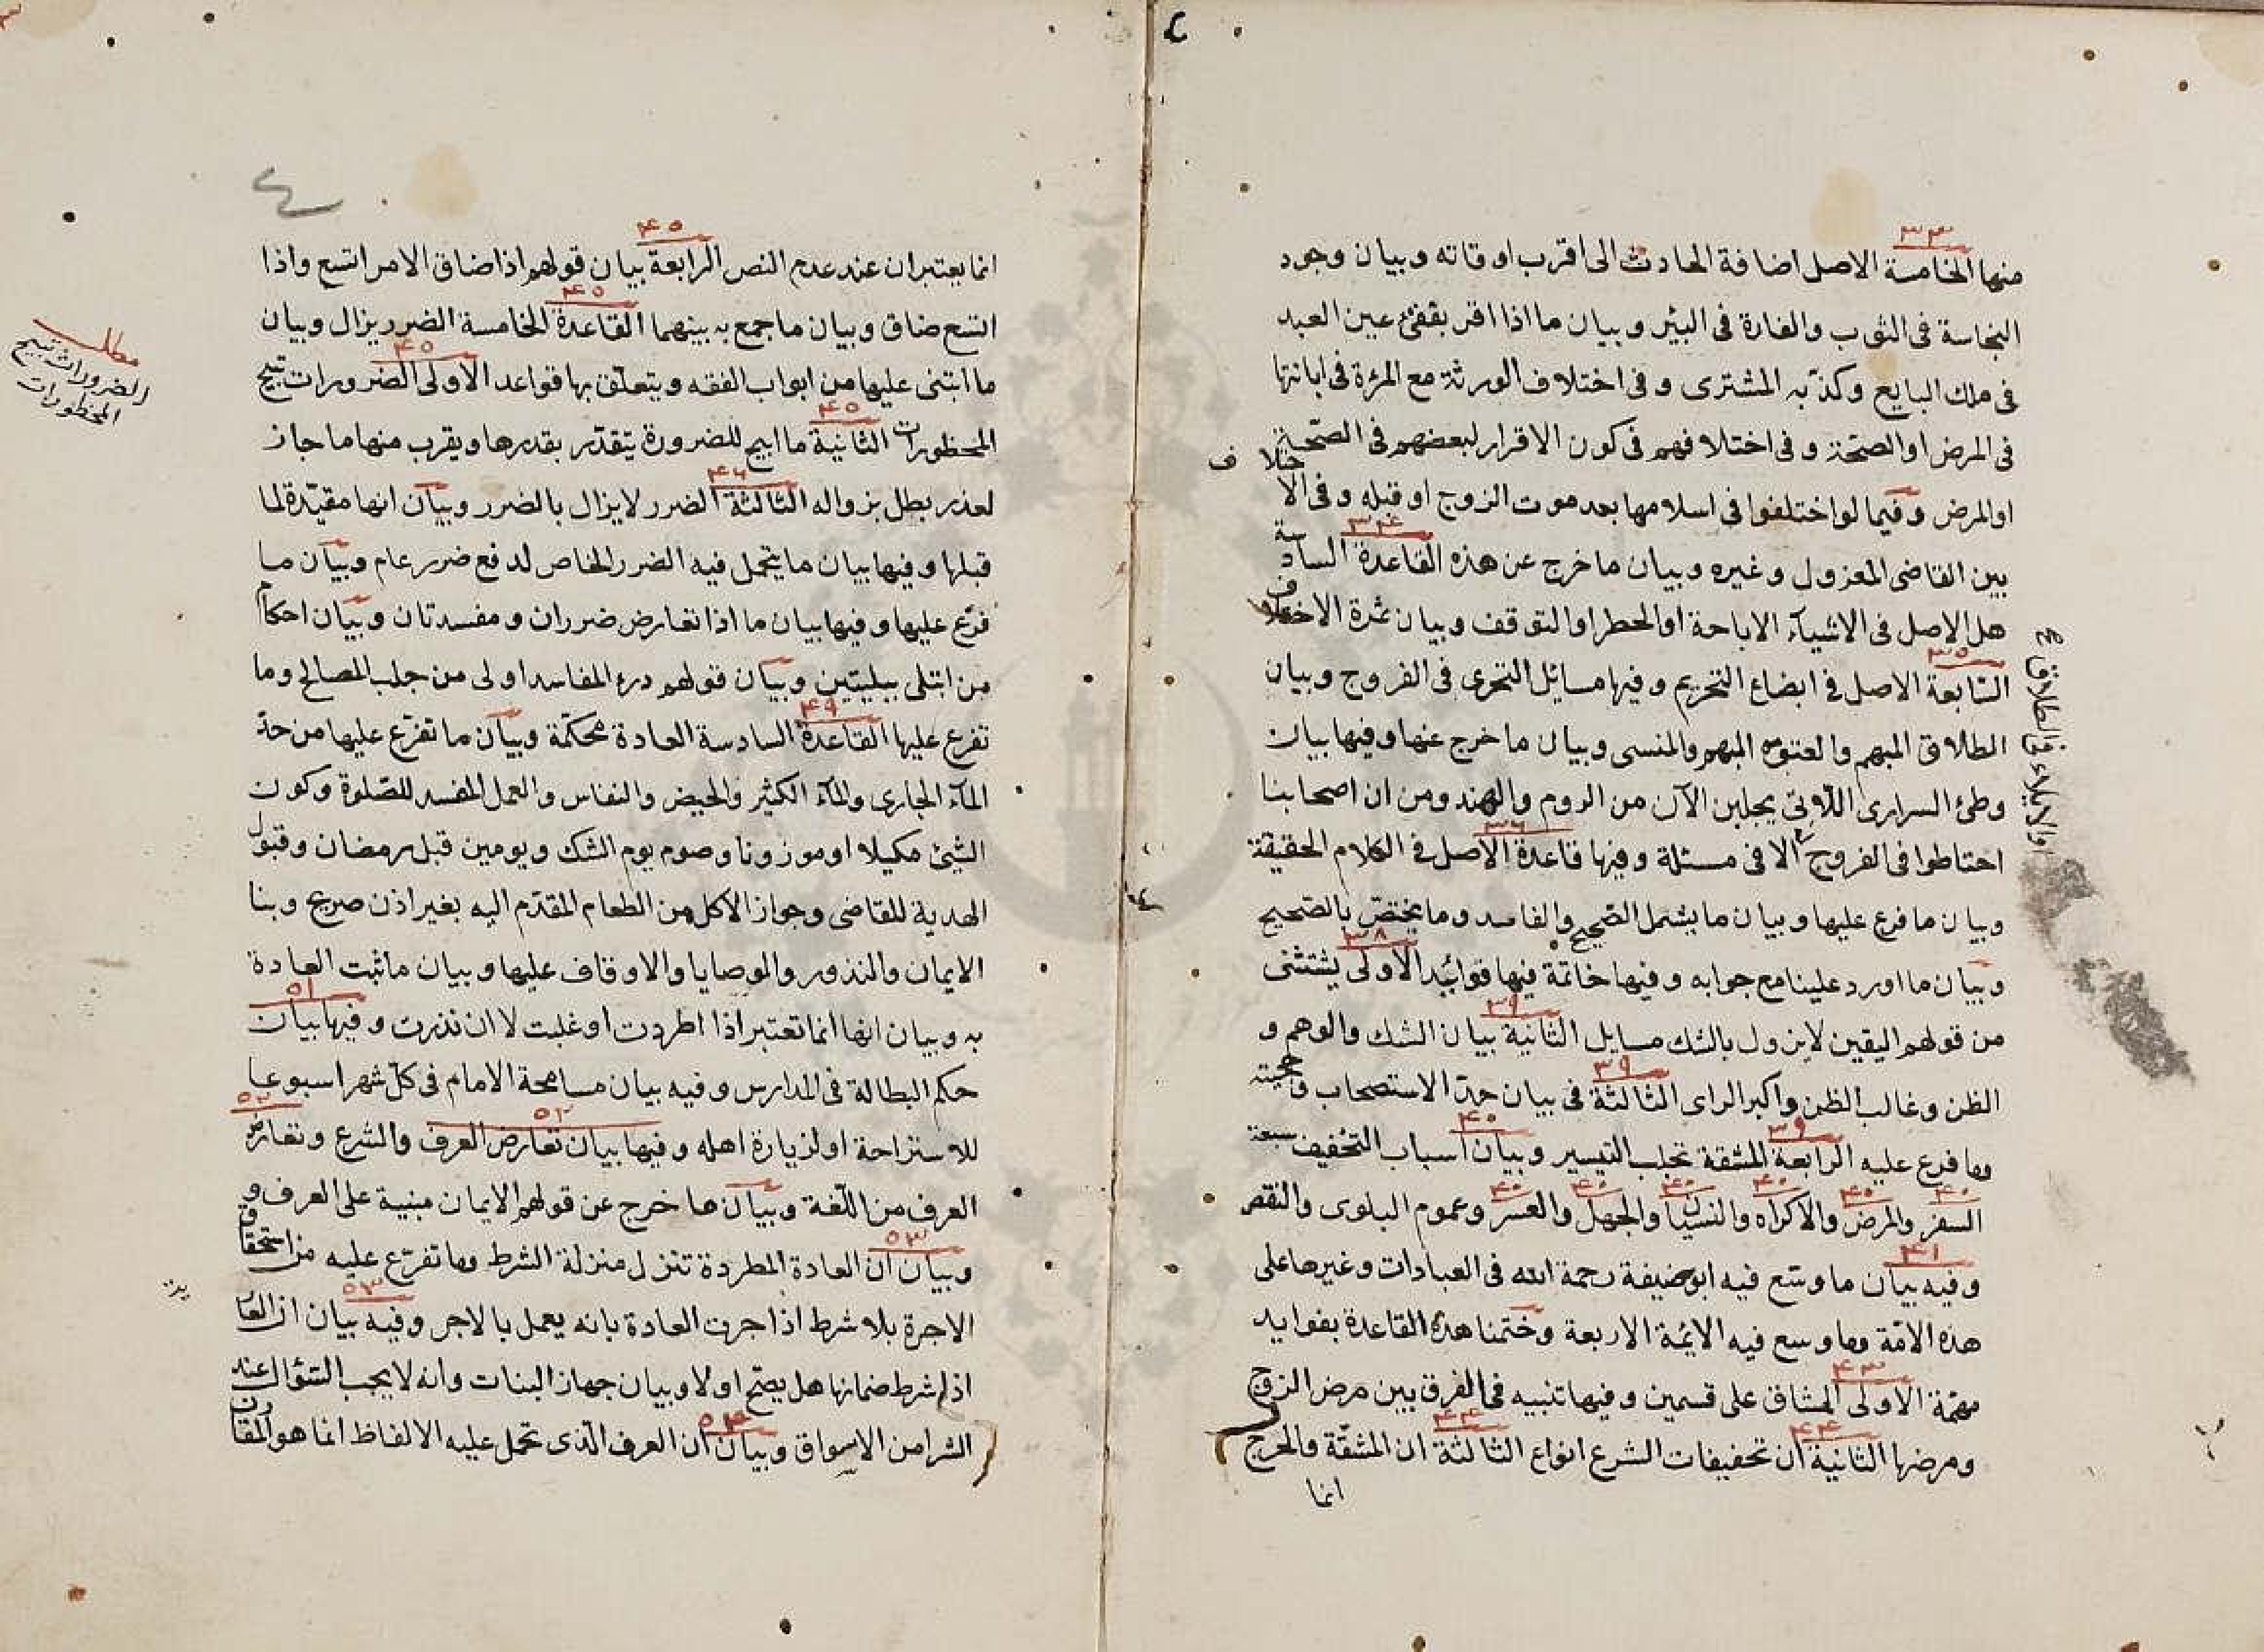 منها الخامسة الاصل اضافة الحادث الى اقرب اوقاته وبيان وجود
النجاسة فى الثوب والفارة فى البئر وبيان ما اذا اقر بفقئ عين العبد
فى ملك البايع وكذبه المشترى وفى اختلاف الورثة مع المرءة فى ابانتها
فى المرض او الصحة وفى اختلافهم فى كون الاقرار لبعضهم فى الصحة
او المرض وفيما لو اختلفوا فى اسلامها بعد موت الزوج او قبله وفى الاختلاف
بين القاضى المعزول وغيره وبيان ما خرج عن هذه القاعدة السادسة
هل الاصل فى الاشيآء الاباحة او الحظر او التوقف وبيان ثمرة الاختلاف
السابعة الاصل فى ابضاع التحريم وفيها مسائل التحرى فى الفروج وبيان
الطلاق المبهم والعتق المبهم والمنسى وبيان ما خرج عنها وفيها بيان
وطئ السرارى اللآتى يجلبن الآن من الروم والهند ومن ان اصحابنا
احتاطوا فى الفروج الا فى مسئلة وفيها قاعدة الاصل فى الكلام الحقيقة
وبيان ما فرع عليها وبيان ما يشمل الصحيح والفاسد وما يختص بالصحيح
وبيان ما اورد علينا مع جوابه وفيها خاتمة فيها فوائد الاولى يستثنى
من قولهم اليقين لا يزول بالشك مسايل الثانية بيان الشك والوهم و
الظن وغالب الظن واكبر الراى الثالثة فى بيان حد الاستصحاب وحجيته
وما فرع عليه الرابعة المشقة تجلب التيسير وبيان اسباب التخفيف سبعة
السفر والمرض والاكراه والنسيان والجهل والعسر وعموم البلوى والنقص
وفيه بيان ما وسّع فيه ابو حنيفة رحمة الله فى العبادات وغيرها على
هذه الامّة وما وسع فيه الائمة الاربعة وختمنا هذه القاعدة بفوايد
مهمّة الاولى المشاق على قسمين وفيها تنبيه فى الفرق بين مرض الزوج
ومرضها الثانية ان تخفيفات الشرع انواع الثالثة ان المشقّة والحرج
انما
انما يعتبران عند عدم النص الرابعة بيان قولهم اذا ضاق الامر اتسع واذا
اتسع ضاق وبيان ما جمع به بينهما القاعدة الخامسة الضرر يزال وبيان
ما ابتنى عليها من ابواب الفقه ويتعلق بها قواعد الاولى الضرورات تبيح
المحظورات الثانية ما ابيح للضرورة يتقدّر بقدرها ويقرب منها ما جاز
لعذر بطل بزواله الثالثة الضرر لا يزال بالضرر وبيان انها مقيّدة لما
قبلها وفيها بيان ما يتحمل فيه الضرر الخاص لدفع ضرر عام وبيان ما
فرع عليها وفيها بيان ما اذا تعارض ضرران ومفسدتان وبيان احكام
من ابتلى ببليتين وبيان قولهم درء المفاسد اولى من جلب المصالح وما
تفرع عليها القاعدة السادسة العادة محكّمة وبيان ما تفرّع عليها من حدّ
المآء الجارى والمآء الكثير والحيض والنفاس والعمل المفسد للصّلوة وكون
الشئ مكيلا او موزونا وصوم يوم الشك ويومين قبل رمضان وقبول
الهدية للقاضى وجواز الاكل من الطعام المقدّم اليه بغير اذن صريح وبنا
الايمان والنذور والوصايا والاوقاف عليها وبيان ما ثبت العادة
به وبيان انها انما تعتبر اذا اطردت او غلبت لا ان ندرت وفيها بيان
حكم البطالة فى المدارس وفيه بيان مسامحة الامام فى كلّ شهر اسبوعا
للاستراحة او لزيارة اهله وفيها بيان تعارض العرف والشرع وتعارض
العرف من اللّغة وبيان ما خرج عن قولهم الايمان مبنية على العرف و
وبيان ان العادة المطردة تتنزل منزلة الشرط وما تفرّع عليه من استحقاق
الاجرة بلا شرط اذا جرت العادة بانه يعمل بالاجر وفيه بيان ان العا
اذا شرط ضمانها هل يصح او لا وبيان جهاز البنات وانه لا يجب السّؤال عند
الشرا من الاسواق وبيان ان العرف الّذى تحمل عليه الالفاظ انما هو المقارن
مطلب
الضرورات تبيح
المحظورات